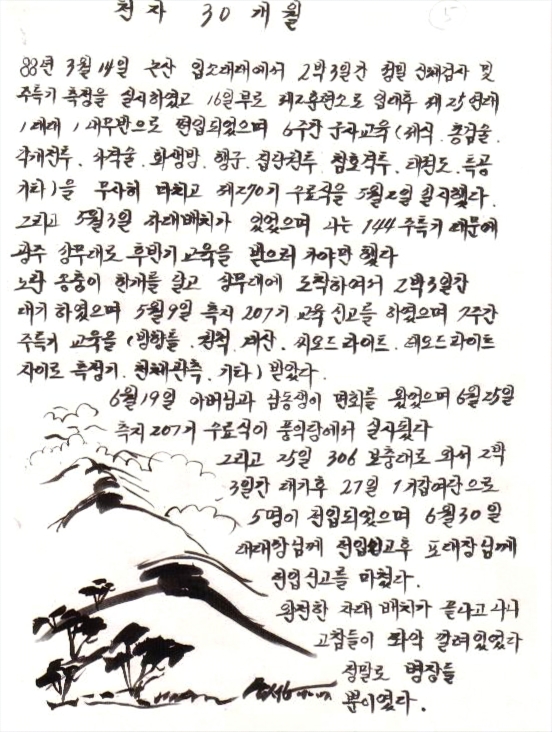 전차 30개월
88년 3월 14일 논산 입소대대에서 2박3일간 정밀 신체검사 및
주특기 측정을 실시하였고 16일부로 제2훈련소로 입대후 제25연대
1대대 1내무반으로 편입되었으며 6주간 군사교육(제식. 총검술.
각개전투. 사격술. 화생방. 행군. 집단전투. 참호격투. 태권도. 특공
기타)을 무사히 마치고 제270기 수료식을 5월2일 실시했다.
그리고 5월3일 자대배치가 있었으며 나는 144주특기 때문에
광주 상무대로 후반기 교육을 받으러 가야만 했다
노란 송충이 한개를 달고 상무대에 도착하여서 2박3일간
대기 하였으며 5월9일 측지 207기 교육 신고를 하였으며 7주간
주특기 교육을 (방향틀. 관척. 계산. 씨오드라이트. 데오드라이트
자이로 측정기. 천체관측. 기타) 받았다.
6월19일 아버님과 남동생이 면회를 왔었으며 6월25일
측지 207기 수료식이 풍익당에서 실시됐다
그리고 25일 306 보충대로 와서 2박
3일간 대기후 27일 1기갑여단으로
5명이 전입되었으며 6월30일
대대장님께 전입신고후 포대장님께
전입신고를 마쳤다.
완전한 자대 배치가 끝나고 나니
고참들이 좌악 깔려있었다
정말로 병장들
뿐이였다.